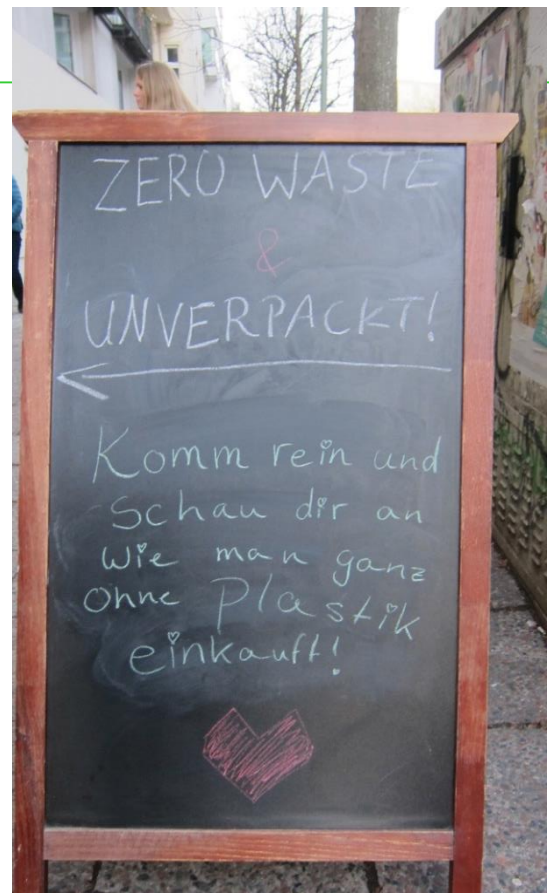 ZERO WASTE
&
UNVERPACKT!
Komm rein und
Schau dir an
Wie man ganz
ohne Plastik
einkauft!